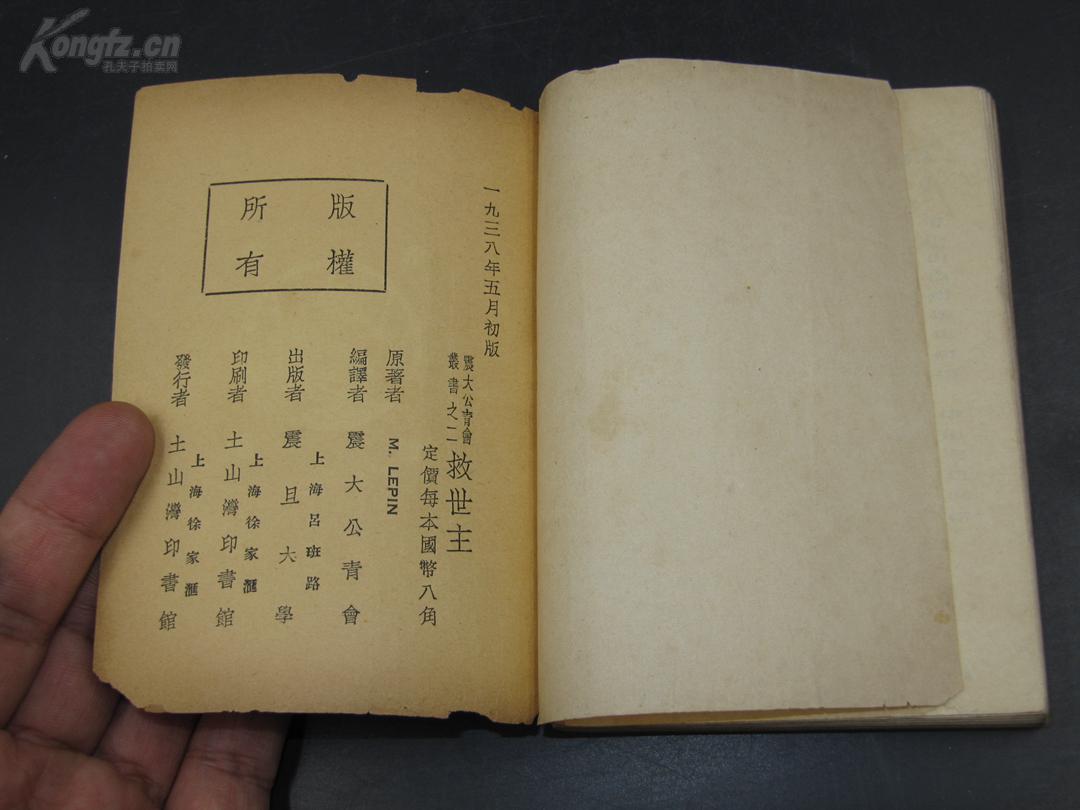 Kongfz.cn
孔夫子拍卖网
一九三八年五月初版
震大公青會
叢書之二
救世主
定價每本國幣八角
原著者 M. LEPIN
編譯者 震大公青會
上海呂班路
出版者 震旦大學
上海徐家滙
印刷者 土山灣印書館
上海徐家滙
發行者 土山灣印書館
版權
所有